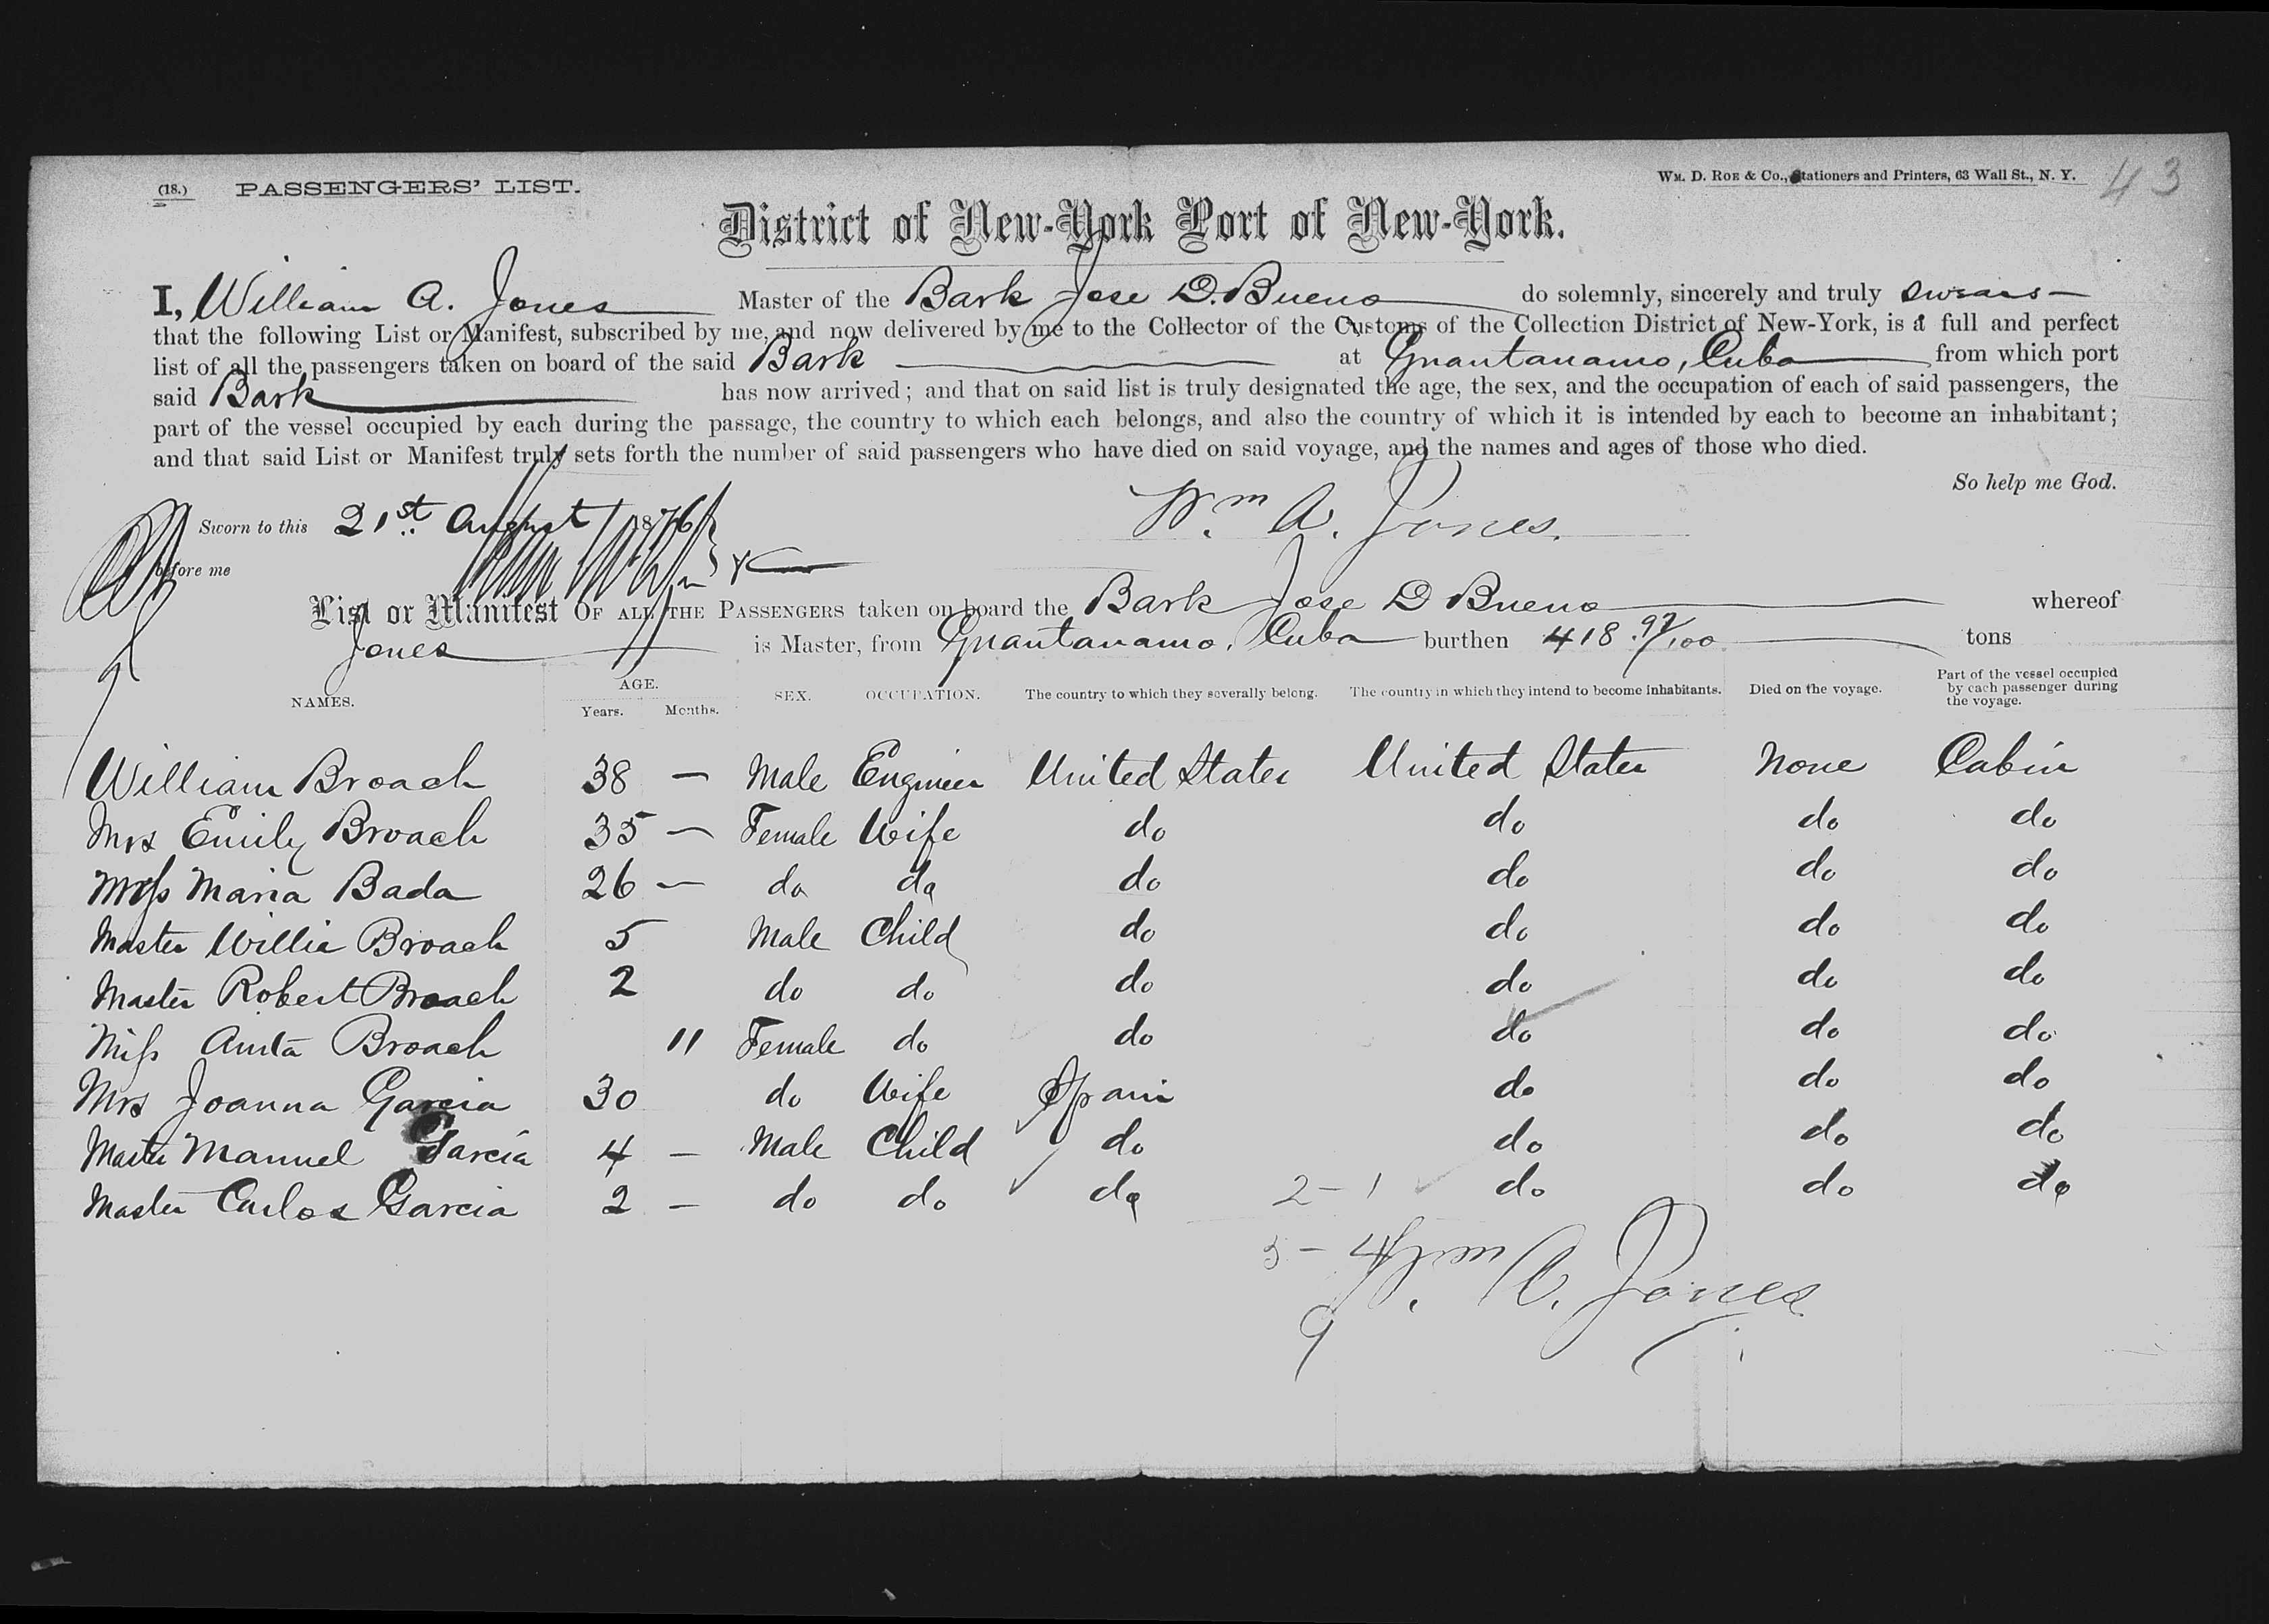 (18.) PASSENGERS' LIST. WM. D. ROE & CO., Stationers and Printers, 63 Wall St., N. Y. 43
District of New-York Port of New-York.
I, William A. Jones Master of the Bark Jose D. Bueno do solemnly, sincerely and truly swear
that the following List or Manifest, subscribed by me, and now delivered by me to the Collector of the Customs of the Collection District of New-York, is a full and perfect
list of all the passengers taken on board of the said Bark at Guantanamo, Cuba from which port
said Bark has now arrived; and that on said list is truly designated the age, the sex, and the occupation of each of said passengers, the
part of the vessel occupied by each during the passage, the country to which each belongs, and also the country of which it is intended by each to become an inhabitant;
and that said List or Manifest truly sets forth the number of said passengers who have died on said voyage, and the names and ages of those who died.
So help me God.
Sworn to this 21st August 1876 Wm A. Jones.
before me
List or Manifest OF ALL THE PASSENGERS taken on board the Bark Jose D Bueno whereof
Jones is Master, from Guantanamo, Cuba burthen 418 97/100 tons
NAMES. AGE. Years. Months. SEX. OCCUPATION. The country to which they severally belong. The country in which they intend to become inhabitants. Died on the voyage. Part of the vessel occupied by each passenger during the voyage.
William Broach 38 — Male Engineer United States United States None Cabin
Mrs Emily Broach 35 — Female Wife do do do do
Miss Maria Bada 26 — do do do do do do
Master Willie Broach 5 Male Child do do do do
Master Robert Broach 2 do do do do do do
Miss Anita Broach 11 Female do do do do do
Mrs Joanna Garcia 30 do Wife Spain do do do
Master Manuel Garcia 4 — Male Child do do do do
Master Carlos Garcia 2 — do do do 2 – 1 do do do
3 – 4 Wm A. Jones
9